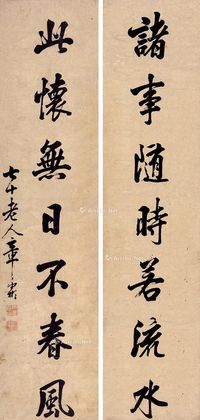 諸事随時若流水
此懷無日不春風
七十老人章